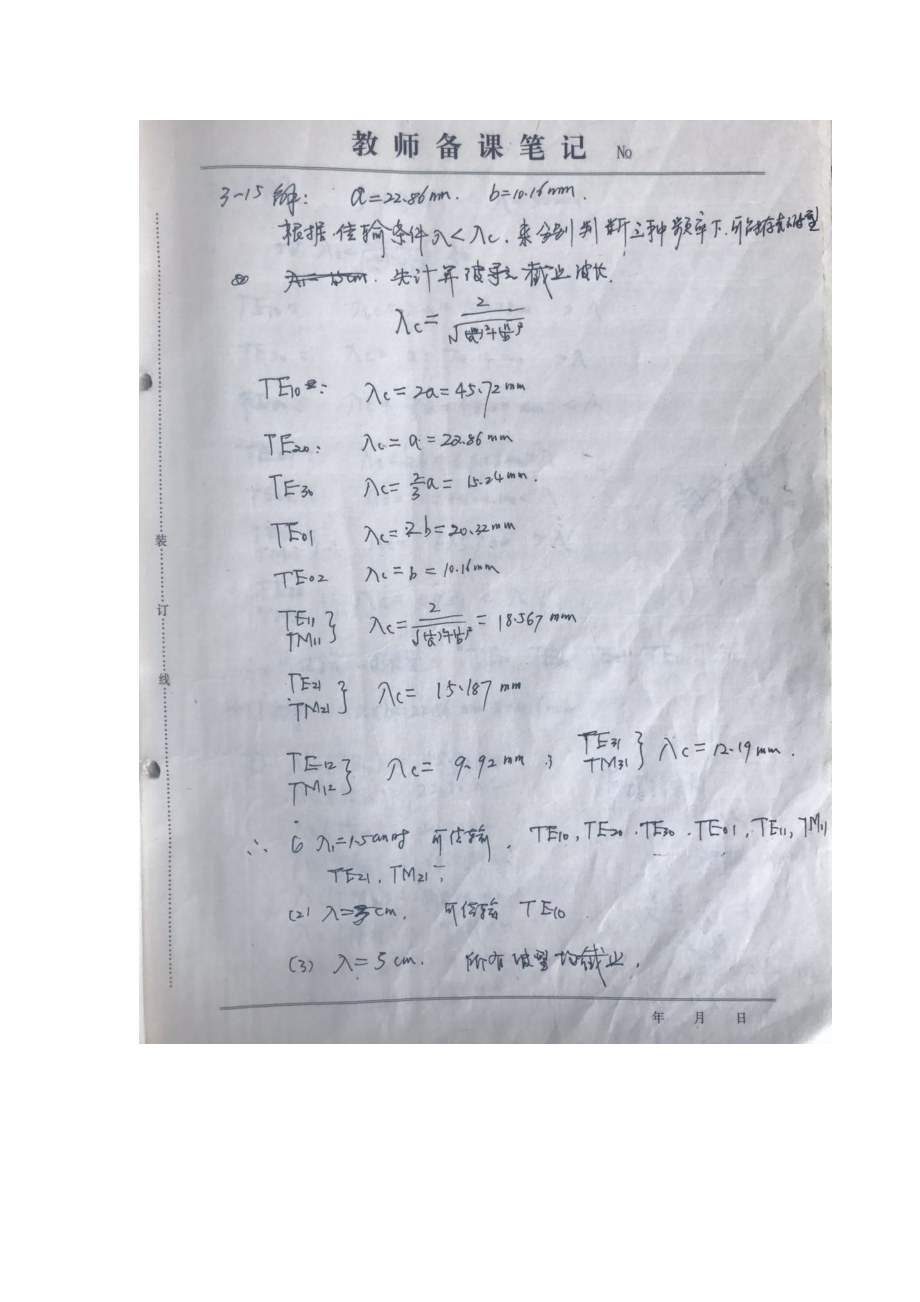 教师备课笔记 No
3-15 解: a=22.86mm. b=10.16mm.
根据传输条件 λ<λc, 来分别判断三种频率下, 可能存在的波型
先计算波导截止波长.
λc = 2/√((m/a)²+(n/b)²)
TE10: λc=2a=45.72mm
TE20: λc=a=22.86mm
TE30 λc=2/3a=15.24mm.
TE01 λc=2b=20.32mm
TE02 λc=b=10.16mm
TE11 TM11} λc=2/√((1/a)²+(1/b)²)=18.567mm
TE21 TM21} λc=15.187mm
TE12 TM12} λc=9.92mm; TE31 TM31} λc=12.19mm.
∴ λ1=1.5cm时 可传输, TE10, TE20. TE30. TE01, TE11, TM11
TE21, TM21
(2) λ=3cm, 可传输 TE10
(3) λ=5cm. 所有波型均截止.
年 月 日
装
订
线